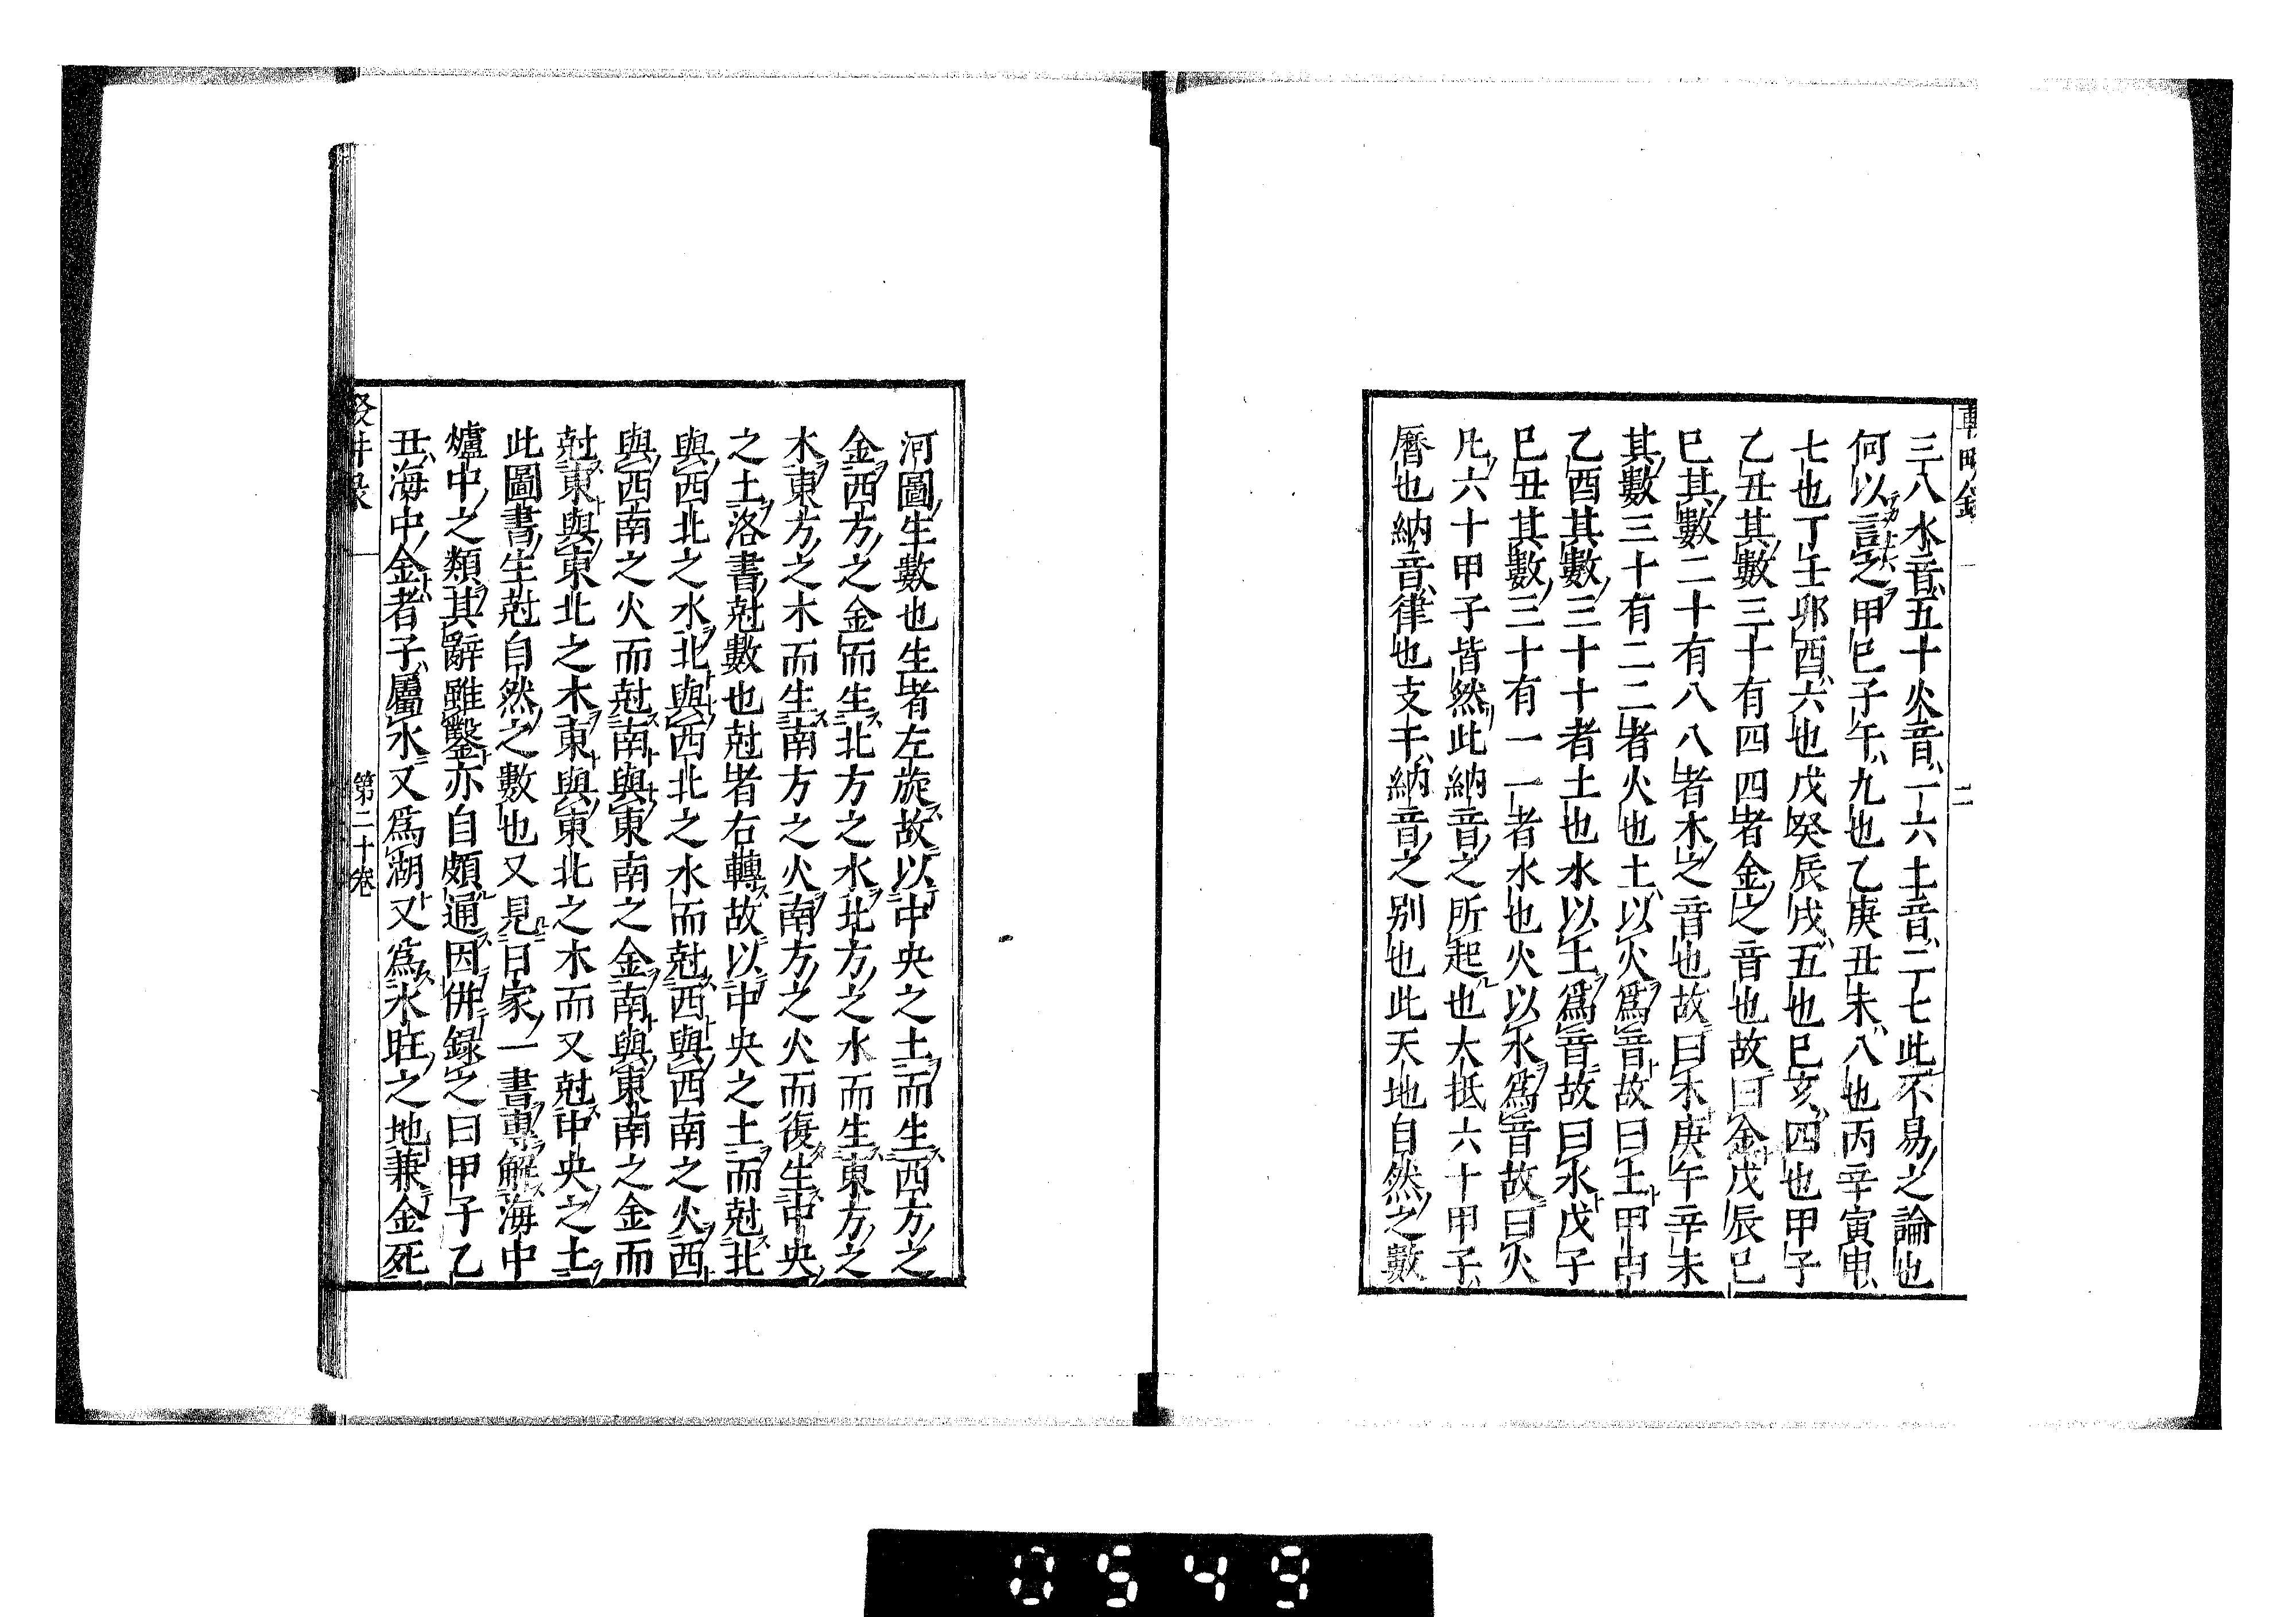 三八水音五十火音一六土音二七此不易之論也
何以言之甲巳子午九也乙庚丑未八也丙辛寅申
七也丁壬卯酉六也戊癸辰戌五也巳亥四也甲子
乙丑其數三十有四四者金之音也故曰金戊辰巳
巳其數二十有八八者木之音也故曰木庚午辛未
其數三十有二二者火也土以火爲音故曰土甲申
乙酉其數三十十者土也水以土爲音故曰水戊子
巳丑其數三十有一一者水也火以水爲音故曰火
凡六十甲子皆然此納音之所起也大抵六十甲子
曆也納音律也支干納音之别也此天地自然之數
河圖生數也生者左旋故以中央之土而生西方之
金西方之金而生北方之水北方之水而生東方之
木東方之木而生南方之火南方之火而復生中央
之土洛書尅數也尅者右轉故以中央之土而尅北
與西北之水北與西北之水而尅西與西南之火西
與西南之火而尅南與東南之金南與東南之金而
尅東與東北之木東與東北之木而又尅中央之土
此圖書生尅自然之數也又見日家一書專解海中
爐中之類其辭雖鑿亦自頗通因併録之曰甲子乙
丑海中金者子屬水又爲湖又爲水旺之地兼金死
第二十卷